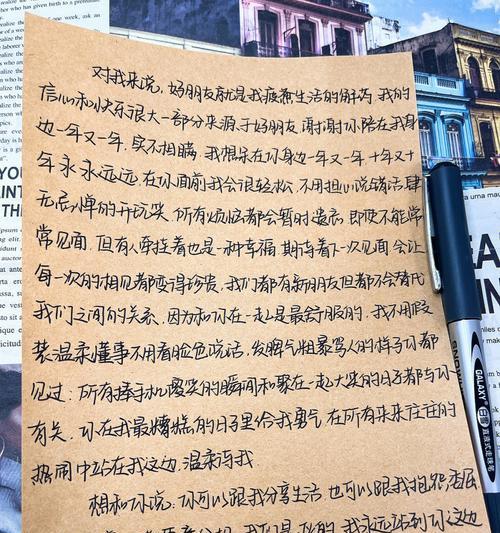 对我来说，好朋友就是我疲惫生活的解药，我的
信心和快乐很大一部分来源于好朋友，谢谢你陪在我身
边一年又一年，实不相瞒，我想呆在你身边一年又一年，十年又十
年，永永远远，在你面前我会很轻松，不用担心说错话，肆
无忌惮的开玩笑，所有烦恼都会暂时遗忘，即使不能常
常见面，但有人牵挂着也是一种幸福，期待着下一次见面，会让
每一次的相见都变得珍贵，我们都有新朋友但都不会替代
我们之间的关系，因为和你在一起是最舒服的，我不用假
装温柔懂事不用看脸色说话，发脾气粗暴骂人的样子你都
见过：所有捧手机傻笑的瞬间和聚在一起大笑的日子都与你
有关，你在我最糟糕的日子里给我勇气，在所有来来往往的
热闹中站在我这边，温柔待我
想和你说：你可以跟我分享生活，也可以跟我抱怨委屈
我们是
我永远站到你这边
GALAXY